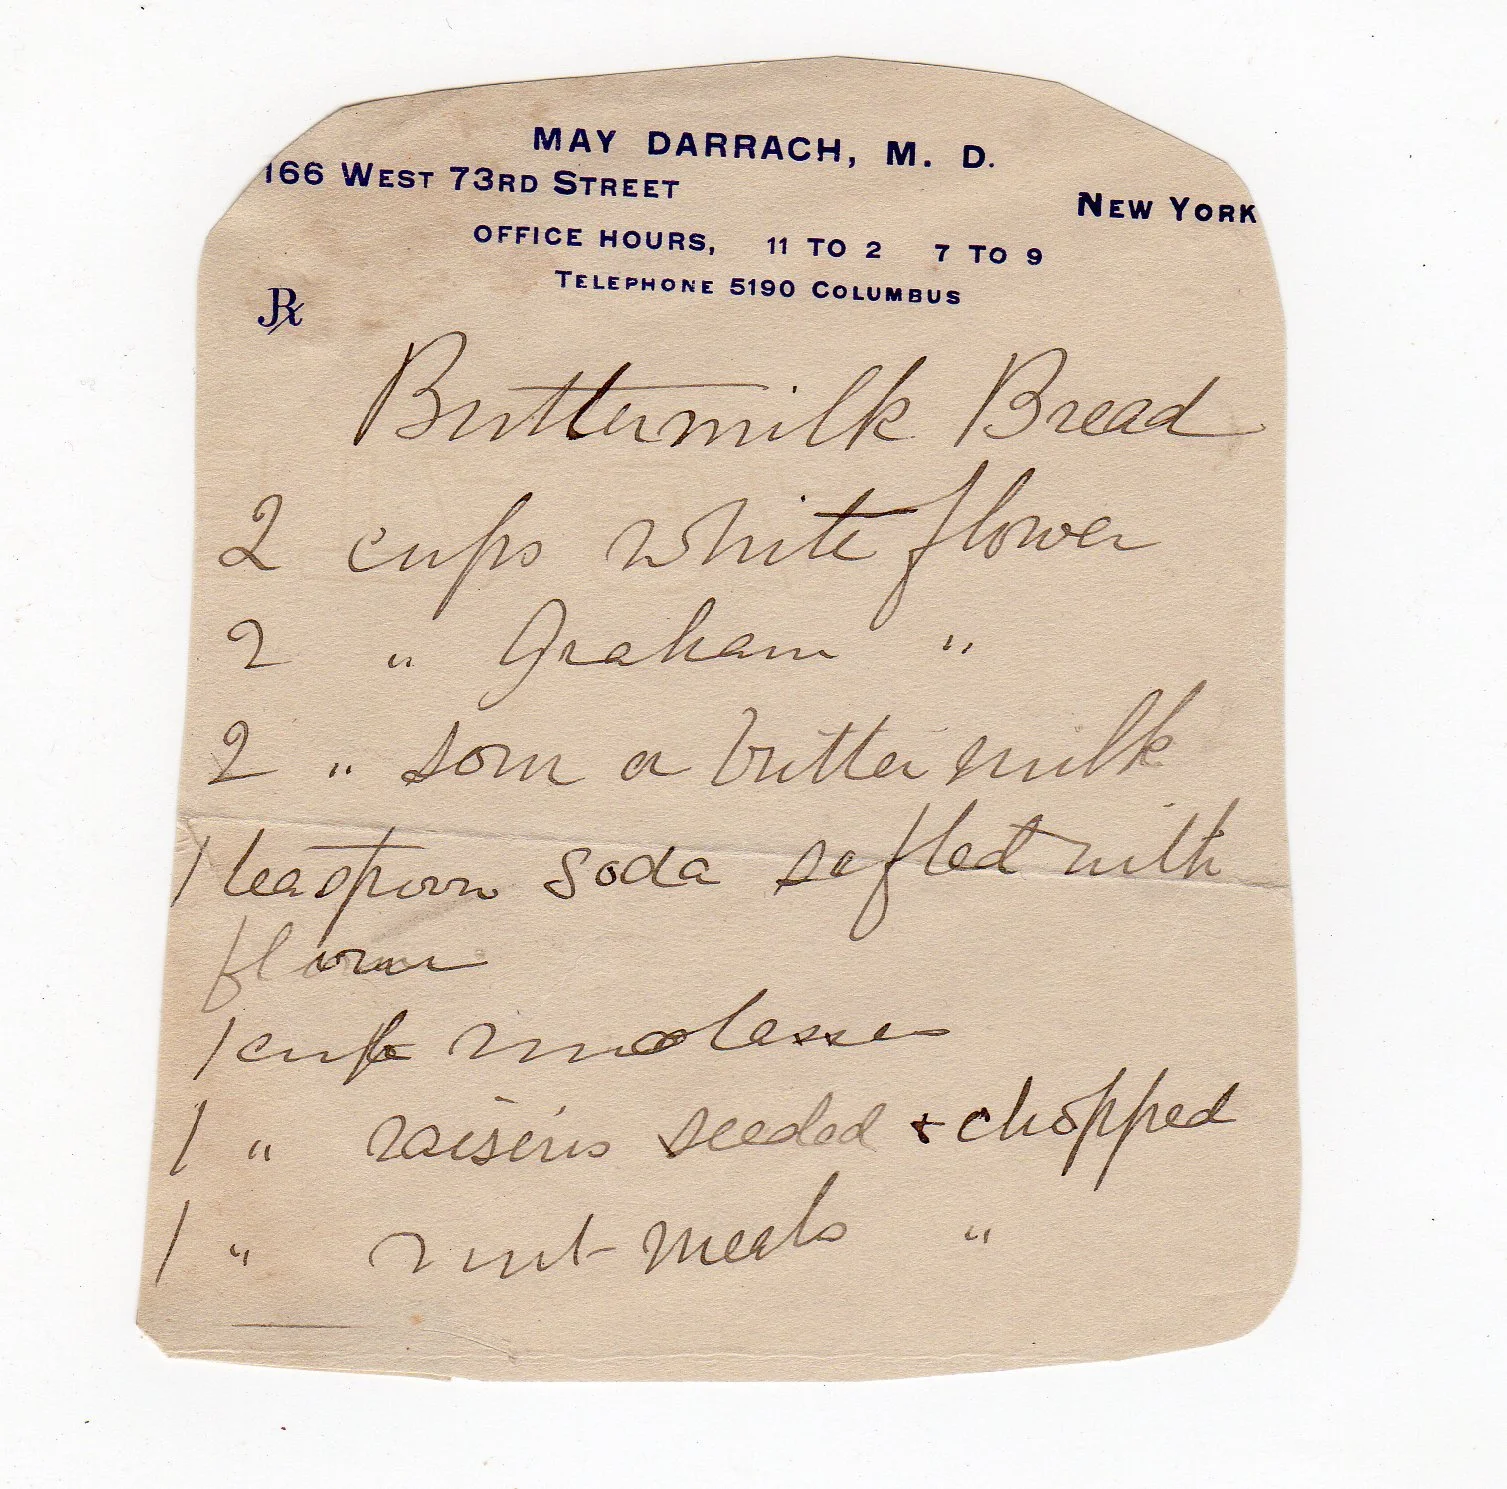 MAY DARRACH, M. D.
166 WEST 73RD STREET
NEW YORK
OFFICE HOURS, 11 TO 2 7 TO 9
TELEPHONE 5190 COLUMBUS
℞
Buttermilk Bread
2 cups white flower
2 " Graham "
2 " sour or butter milk
1 teaspoon soda sifted with
flour
1 cup molasses
1 " raisins seeded + chopped
1 " nut meats "